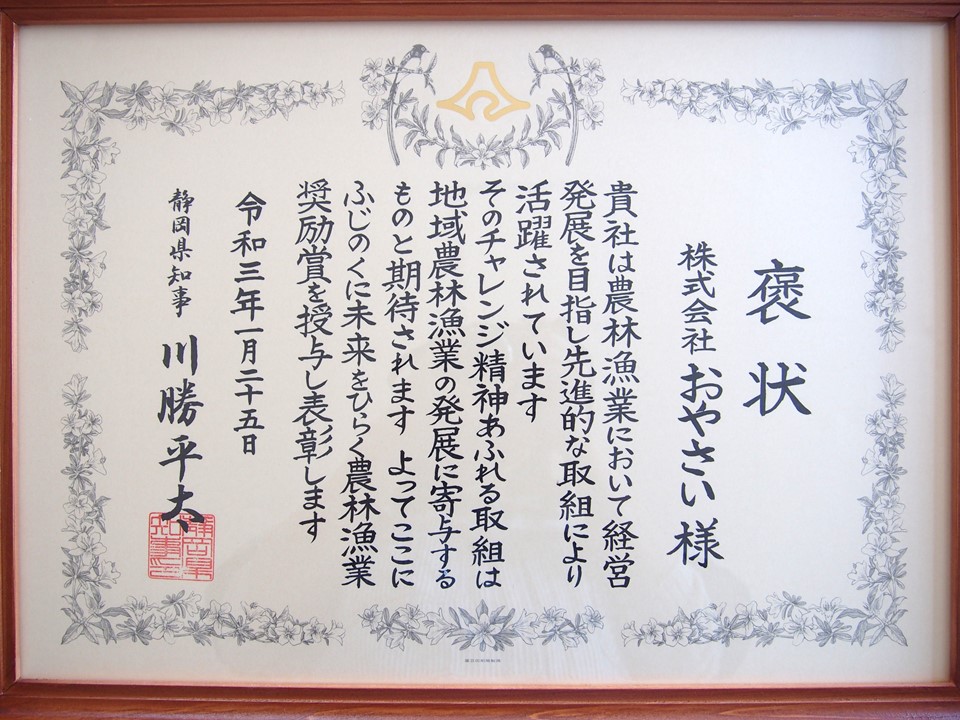 褒状
株式会社おやさい様
貴社は農林漁業において経営
発展を目指し先進的な取組により
活躍されています
そのチャレンジ精神あふれる取組は
地域農林漁業の発展に寄与する
ものと期待されます よってここに
ふじのくに未来をひらく農林漁業
奨励賞を授与し表彰します
令和三年一月二十五日
静岡県知事 川勝平太
静岡県
知事之印